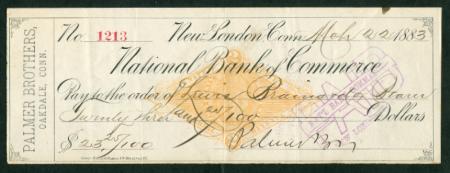 PALMER BROTHERS,
OAKDALE, CONN.
No. 1213 New London Conn. Mch 22 1883
National Bank of Commerce
Pay to the order of Brainard
Twenty three and 25/100 Dollars
$23.25/100 Palmer Bros